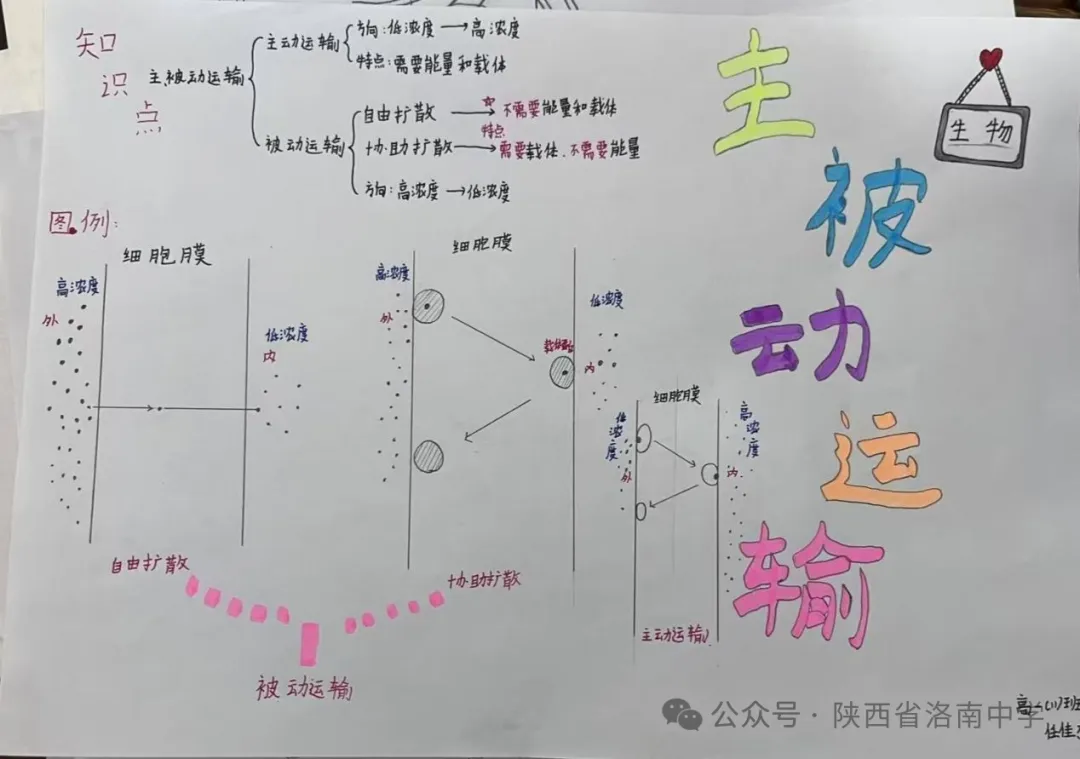 知识点
主、被动运输
主动运输
方向:低浓度→高浓度
特点:需要能量和载体
被动运输
自由扩散 → 不需要能量和载体
特点
协助扩散→需要载体、不需要能量
方向:高浓度→低浓度
主被动运输
生物
图例:
细胞膜
高浓度
外
低浓度
内
自由扩散
细胞膜
高浓度
外
低浓度
内
协助扩散
被动运输
细胞膜
低浓度
外
高浓度
内
主动运输
公众号·陕西省洛南中学